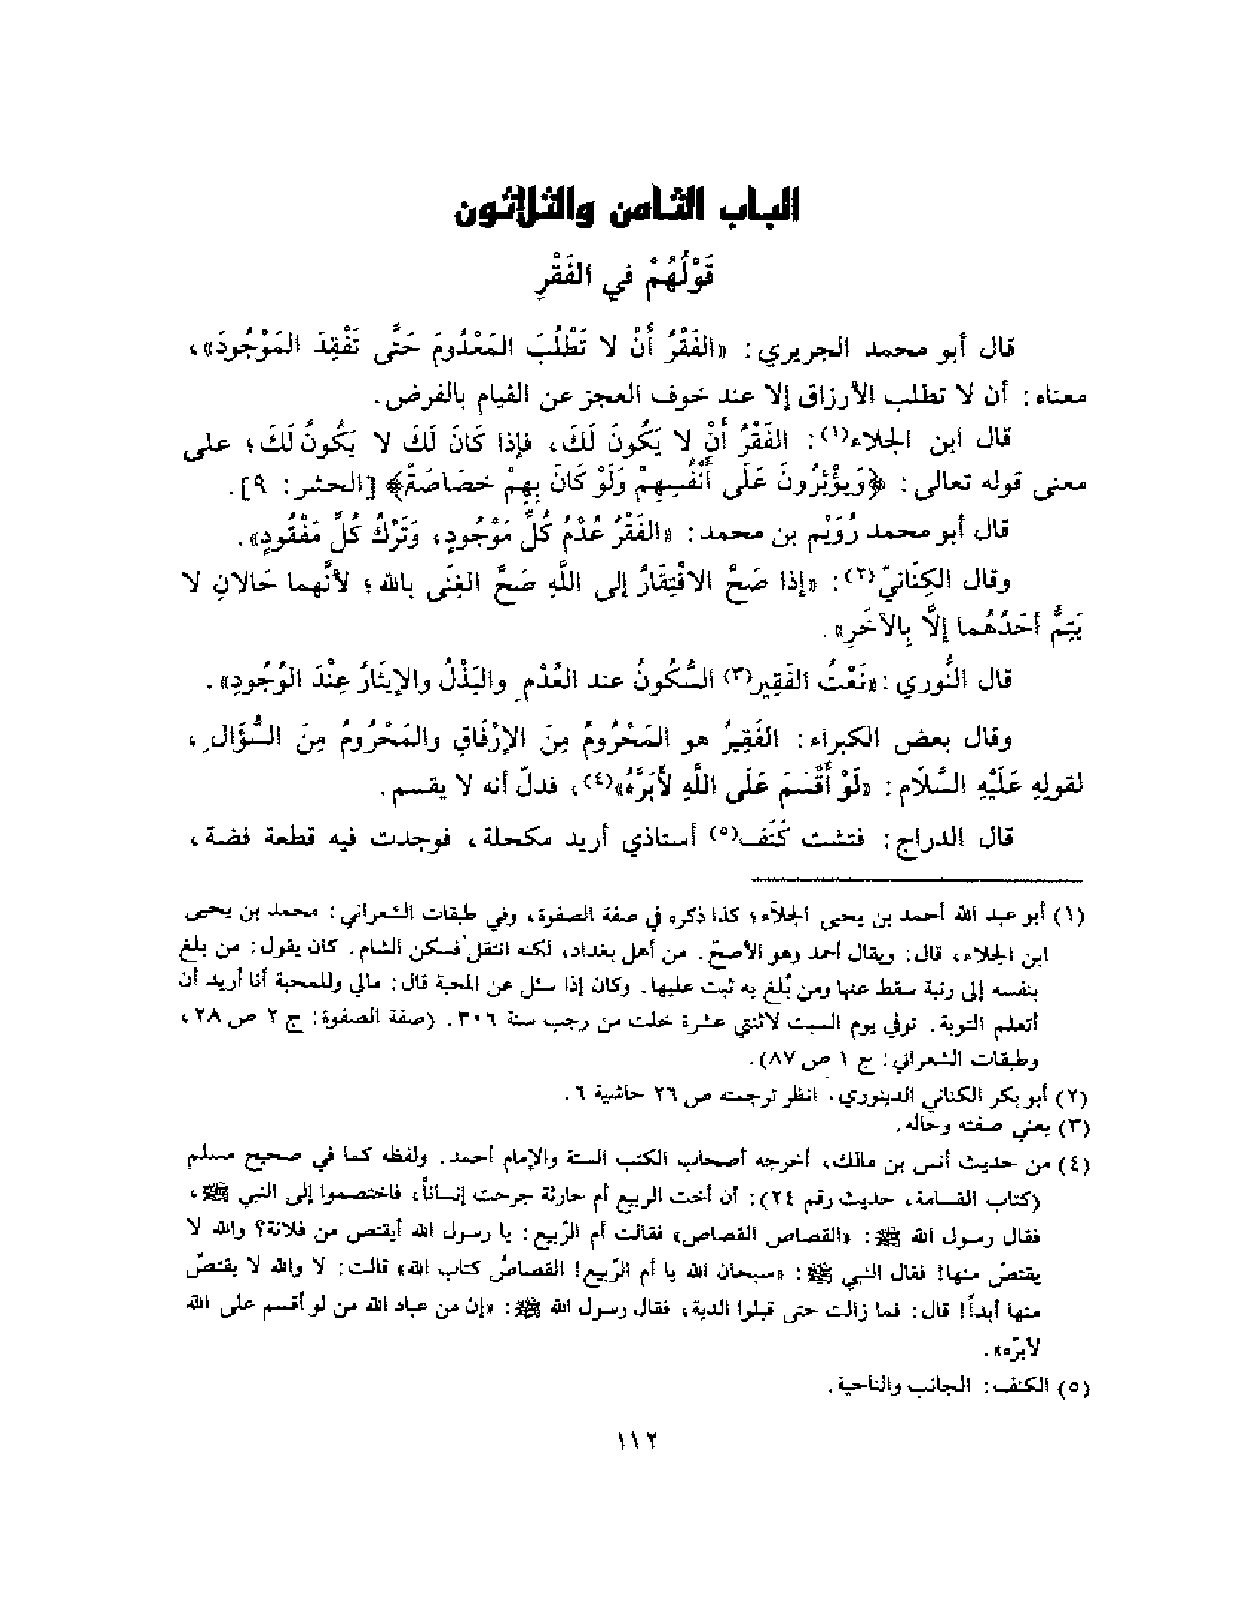 الباب الثامن والثلاثون
قَوْلُهُمْ في الفَقْرِ
قال أبو محمد الجريري: «الفَقْرُ أَنْ لا تَطْلُبَ المَعْدُومَ حَتَّى تَفْقِدَ المَوْجُودَ»،
معناه: أن لا تطلب الأرزاق إلا عند خوف العجز عن القيام بالفرض.
قال ابن الجلاء(١): الفَقْرُ أَنْ لا يَكُونَ لَكَ، فإذا كَانَ لَكَ لا يَكُونُ لَكَ؛ على
معنى قوله تعالى: ﴿وَيُؤْثِرُونَ عَلَى أَنْفُسِهِمْ وَلَوْ كَانَ بِهِمْ خَصَاصَةٌ﴾ [الحشر: ٩].
قال أبو محمد رُوَيْم بن محمد: «الفَقْرُ عُدْمُ كُلِّ مَوْجُودٍ، وَتَرْكُ كُلِّ مَفْقُودٍ».
وقال الكِتَانيّ(٢): «إذا صَحَّ الافْتِقَارُ إلى اللَّهِ صَحَّ الغِنَى بالله؛ لأنَّهما حَالانِ لا
يَتِمُّ أحَدُهُما إلَّا بِالآخَرِ».
قال النُّوري: «نَعْتُ الفَقِيرِ(٣) السُّكُونُ عند العُدْمِ والبَذْلُ والإيثَارُ عِنْدَ الوُجُودِ».
وقال بعض الكبراء: الفَقِيرُ هو المَحْرُومُ مِنَ الإرْفَاقِ والمَحْرُومُ مِنَ السُّؤَالِ،
لقولِهِ عَلَيْهِ السَّلَام: «لَوْ أَقْسَمَ عَلَى اللَّهِ لأَبَرَّهُ»(٤)، فدلّ أنه لا يقسم.
قال الدراج: فتشت كَنَف(٥) أستاذي أريد مكحلة، فوجدت فيه قطعة فضة،
(١) أبو عبد الله أحمد بن يحيى الجلاَء؛ كذا ذكره في صفة الصفوة، وفي طبقات الشعراني: محمد بن يحيى
ابن الجلاء، قال: ويقال أحمد وهو الأصحّ. من أهل بغداد، لكنه انتقل فسكن الشام. كان يقول: من بلغ
بنفسه إلى رتبة سقط عنها ومن بُلغ به ثبت عليها. وكان إذا سئل عن المحبة قال: مالي وللمحبة أنا أريد أن
أتعلم التوبة. توفي يوم السبت لاثنتي عشرة خلت من رجب سنة ٣٠٦. (صفة الصفوة: ج ٢ ص ٢٨،
وطبقات الشعراني: ج ١ ص ٨٧).
(٢) أبو بكر الكتاني الدينوري. انظر ترجمته ص ٢٦ حاشية ٦.
(٣) يعني صفته وحاله.
(٤) من حديث أنس بن مالك، أخرجه أصحاب الكتب الستة والإمام أحمد. ولفظه كما في صحيح مسلم
(كتاب القسامة، حديث رقم ٢٤): أن أخت الربيع أم حارثة جرحت إنساناً، فاختصموا إلى النبي ﷺ،
فقال رسول الله ﷺ: «القصاص القصاص» فقالت أم الرّبيع: يا رسول الله أيقتص من فلانة؟ والله لا
يقتصّ منها! فقال النبي ﷺ: «سبحان الله يا أم الرّبيع! القصاصُ كتاب الله» قالت: لا والله لا يقتصّ
منها أبداً! قال: فما زالت حتى قبلوا الدية، فقال رسول الله ﷺ: «إن من عباد الله من لو أقسم على الله
لأبرّه».
(٥) الكنف: الجانب والناحية.
١١٢